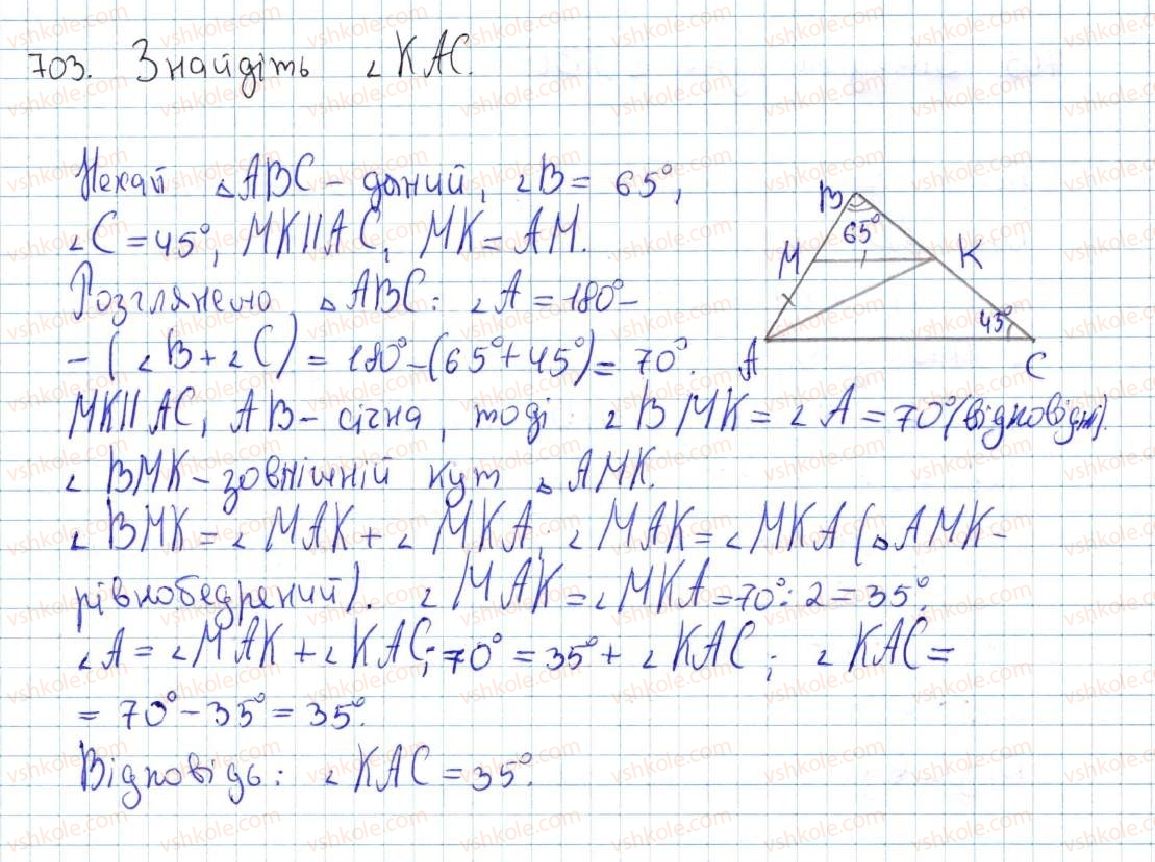 703. Знайдіть ∠KAC.
Нехай △ABC – даний, ∠B = 65°,
∠C = 45°, MK || AC, MK = AM.
Розглянемо △ABC: ∠A = 180° –
– (∠B + ∠C) = 180° – (65° + 45°) = 70°.
MK || AC, AB – січна, тоді ∠BMK = ∠A = 70° (відповідні).
∠BMK – зовнішній кут △AMK.
∠BMK = ∠MAK + ∠MKA; ∠MAK = ∠MKA (△AMK –
рівнобедрений). ∠MAK = ∠MKA = 70° : 2 = 35°.
∠A = ∠MAK + ∠KAC; 70° = 35° + ∠KAC; ∠KAC =
= 70° – 35° = 35°.
Відповідь: ∠KAC = 35°.
B
65°
M
K
45°
A
C
vshkole.com